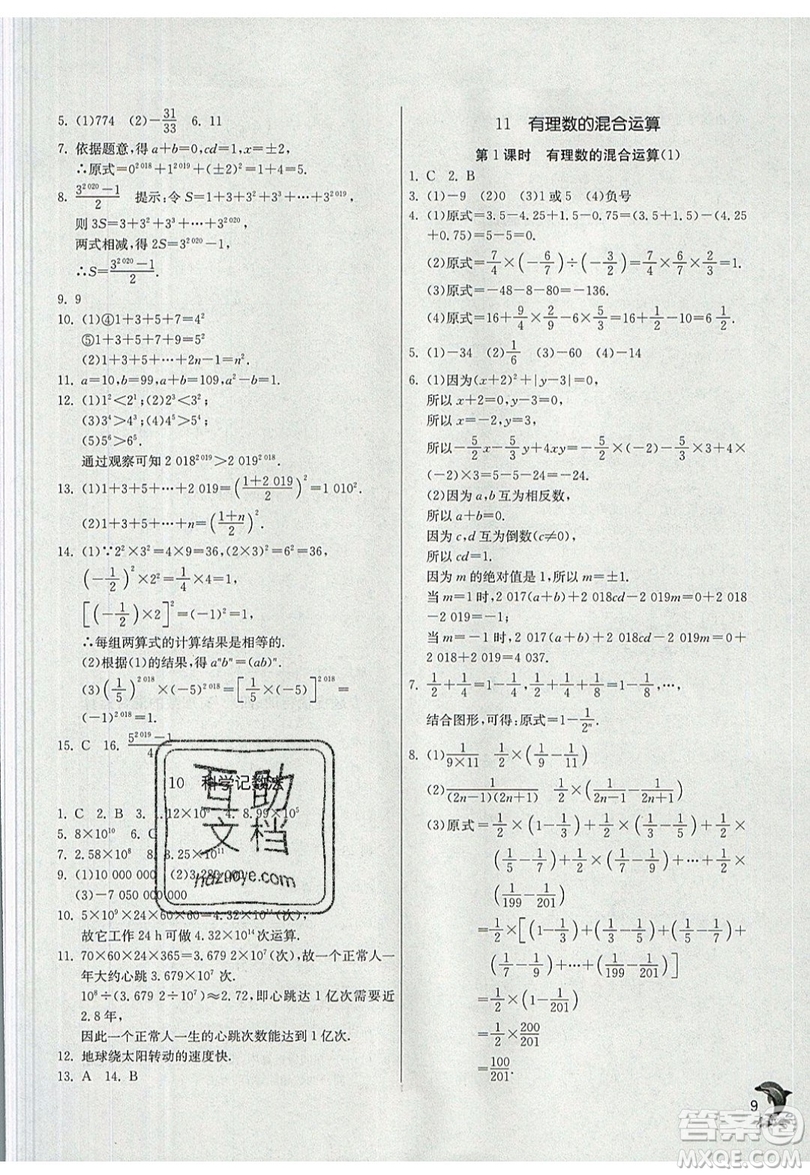 5. (1)774 (2)-31/33 6. 11
7. 依据题意,得 a+b=0,cd=1,x=±2,
∴原式=0^2 018+1^2 018+2^2=5.
8. (3^2 020-1)/2 提示:令 S=1+3+3^2+3^3+…+3^2 019,
则 3S=3+3^2+…+3^2 020.
两式相减,得 2S=3^2 020-1.
∴S=(3^2 020-1)/2.
9. 9
10. (1)④1+3+5+7=4^2
⑤1+3+5+7+9=5^2
(2)1+3+5+7+…+2n-1=n^2.
11. a=10,b=99,a+b=10+99=109.
12. (1)1^2<2^1;(2)2^3<3^2;
(3)3^4>4^3;(4)4^5>5^4;
(5)5^6>6^5.
通过观察可知 2 018^2019>2 019^2 018.
13. (1)1+3+5+…+2 019=((1+2 019)/2)^2=1 010^2.
(2)1+3+5+…+n=((1+n)/2)^2.
14. (1)∵2^2×3^2=4×9=36,(2×3)^2=6^2=36,
(-1/2)^2×2^2=1/4×4=1,
[(-1/2)×2]^2=(-1)^2=1,
∴每组两算式的计算结果是相等的.
(2)根据(1)的结果,得 a^n b^n=(ab)^n.
(3)(1/5)^2 018×(-5)^2 018=[1/5×(-5)]^2 018=
(-1)^2 018=1.
15. C 16. (5^2 019-1)/4
10 科学记数法
1. C 2. B 3. 1.12×10 4. 8.99×10
5. 8×10^10 6. C
7. 2.58×10^8 8. 6.25×10
9. (1)10 000 000 (2)3 280 000
(3)-7 050 000 000
10. 5×10^9×24×60×60=4.32×10^14(次),
故它工作 24 h 可做 4.32×10^14次运算.
11. 70×60×24×365=3.679 2×10^7(次),故一个正常人一
年大约心跳 3.679 2×10^7次.
10^8÷(3.679 2×10^7)≈2.72,即心跳达 1 亿次需要近
2.8 年,
因此一个正常人一生的心跳次数能达到 1 亿次.
12. 地球绕太阳转动的速度快.
13. A 14. B
11 有理数的混合运算
第 1 课时 有理数的混合运算(1)
1. C 2. B
3. (1)-9 (2)0 (3)1 或 5 (4)负号
4. (1)原式=3.5-4.25+1.5-0.75=(3.5+1.5)-(4.25
+0.75)=5-5=0.
(2)原式=7/4×(-6/7)÷(-3/2)=7/4×6/7×2/3=1.
(3)原式=-48-8-80=-136.
(4)原式=16+9/4×2/9-6×1/2=16+1/2-3=13 1/2.
5. (1)-34 (2)1/6 (3)-60 (4)-14
6. (1)因为(x+2)^2+|y-3|=0,
所以 x+2=0,y-3=0,
所以 x=-2,y=3,
所以-5/2x-5/3y+4xy=-5/2×(-2)-5/3×3+4×
(-2)×3=5-5-24=-24.
(2)因为 a,b 互为相反数,
所以 a+b=0.
因为 c,d 互为倒数(c≠0),
所以 cd=1.
因为 m 的绝对值是 1,所以 m=±1.
当 m=1 时,2 017(a+b)+2 018cd-2 019m=0+2 018
-2 019=-1;
当 m=-1 时,2 017(a+b)+2 018cd-2 019m=0+
2 018+2 019=4 037.
7. 1/2+1/4=1-1/4,1/2+1/4+1/8=1-1/8,…,
结合图形,可得:原式=1-1/2^n.
8. (1)1/(9×11) 1/2×(1/9-1/11)
(2)1/((2n-1)(2n+1)) 1/2×(1/(2n-1)-1/(2n+1))
(3)原式=1/2×(1-1/3)+1/2×(1/3-1/5)+1/2×
(1/5-1/7)+1/2×(1/7-1/9)+…+1/2×
(1/199-1/201)
=1/2×[(1-1/3)+(1/3-1/5)+(1/5-1/7)+
(1/7-1/9)+…+(1/199-1/201)]
=1/2×(1-1/201)
=1/2×200/201
=100/201.
互助
文档
hdzuoye.com
9
答案圈
MXQE.COM